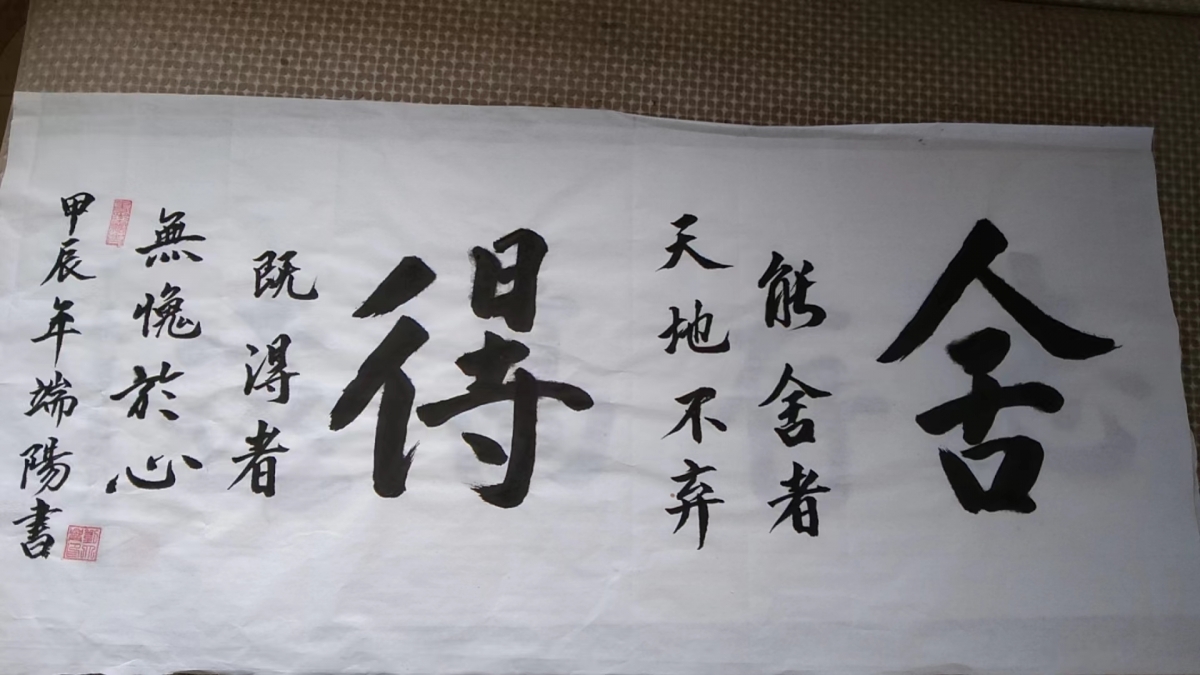 舍
能舍者
天地不弃
得
既得者
無愧於心
甲辰年端陽書